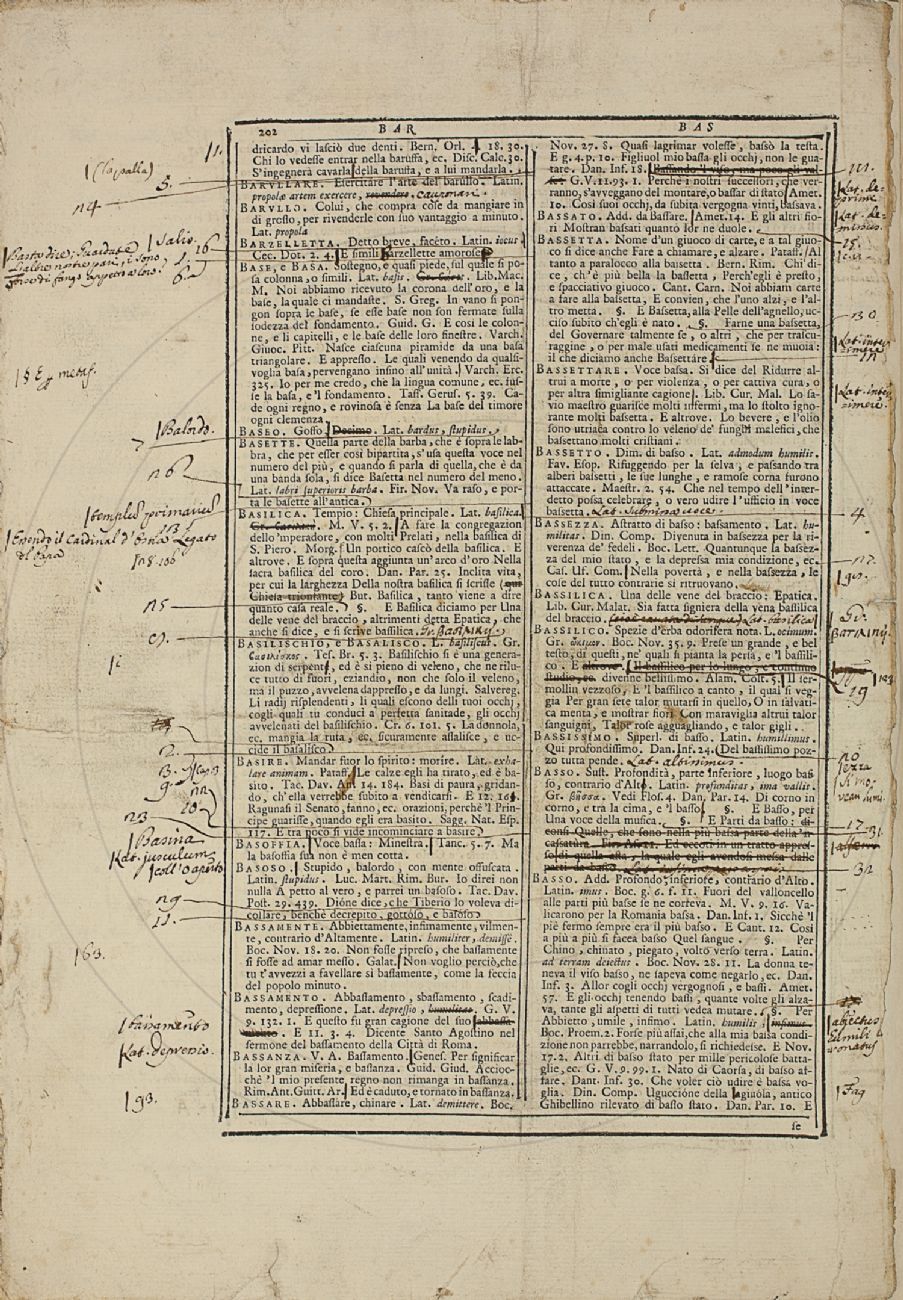 202 BAR BAS
dricardo vi lasciò due denti. Bern. Orl. 18. 30.
Chi lo vedesse entrar nella baruffa, ec. Disc. Calc. 30.
S'ingegnerà cavarla della baruffa, e a lui mandarla.
BARULLARE. Esercitare l'arte del barullo. Latin.
propolæ artem exercere,
BARULLO. Colui, che compra cose da mangiare in
di grosso, per rivenderle con suo vantaggio a minuto.
Lat. propola
BARZELLETTA. Detto breve, faceto. Latin. iocus
Cec. Dot. 2. 4. E simili Barzellette amorose
BASE, e BASA. Sostegno, e quasi piede, sul quale si po-
sa colonna, o simili. Lat. basis. Lib. Mac.
M. Noi abbiamo ricevuto la corona dell'oro, e la
base, la quale ci mandaste. S. Greg. In vano si pon-
gon sopra le base, se esse base non son fermate sulla
sodezza del fondamento. Guid. G. E così le colon-
ne, e li capitelli, e le base delle loro finestre. Varch.
Giuoc. Pitt. Nasce ciascuna piramide da una basa
triangolare. E appresso. Le quali venendo da qualsi-
voglia basa, pervengano insino all'unità. Varch. Erc.
325. Io per me credo, che la lingua comune, ec. fus-
se la basa, e 'l fondamento. Tass. Gerus. 5. 39. Ca-
de ogni regno, e rovinosa è senza La base del timore
ogni clemenza
BASEO. Goffo, Decimo. Lat. bardus, stupidus.
BASETTE. Quella parte della barba, che è sopra le lab-
bra, che per esser così bipartita, s'usa questa voce nel
numero del più, e quando si parla di quella, che è da
una banda sola, si dice Basetta nel numero del meno.
Lat. labri superioris barba. Fir. Nov. Va raso, e por-
ta le basette all'antica.
BASILICA. Tempio: Chiesa principale. Lat. basilica.
M. V. 5. 2. A fare la congregazion
dello 'mperadore, con molti Prelati, nella basilica di
S. Piero. Morg. Un portico cascò della basilica. E
altrove. E sopra questa aggiunta un'arco d'oro Nella
sacra basilica del coro. Dan. Par. 25. Inclita vita,
per cui la larghezza Della nostra basilica si scrisse (qui
Chiesa trionfante) But. Basilica, tanto viene a dire
quanto casa reale. §. E Basilica diciamo per Una
delle vene del braccio, altrimenti detta Epatica, che
anche si dice, e si scrive basilica.
BASILISCHIO, e BASALISCO. L. basiliscus. Gr.
Tes. Br. 5. 3. Basilischio si è una genera-
zion di serpenti, ed è sì pieno di veleno, che ne rilu-
ce tutto di fuori, eziandio, non che solo il veleno,
ma il puzzo, avvelena dappresso, e da lungi. Salvereg.
Li radij risplendenti, li quali escono delli tuoi occhj,
cogli quali tu conduci a perfetta sanitade, gli occhj
avvelenati del basilischio. Cr. 6. 101. 5. La donnola,
ec. mangia la ruta, ec. sicuramente assalisce, e uc-
cide il basalisco
BASIRE. Mandar fuor lo spirito: morire. Lat. exha-
lare animam. Pataff. Le calze egli ha tirato, ed è ba-
sito. Tac. Dav. An. 14. 184. Basì di paura, gridan-
do, ch'ella verrebbe subito a vendicarsi. E 12. 161.
Ragunasi il Senato, fanno, ec. orazioni, perchè 'l Prin-
cipe guarisse, quando egli era basito. Sagg. Nat. Esp.
117. E tra poco si vide incominciare a basire
BASOFFIA. Voce bassa: Minestra. Tanc. 5. 7. Ma
la basoffia sua non è men cotta.
BASOSO. Stupido, balordo, con mente offuscata.
Latin. stupidus. Luc. Mart. Rim. Bur. Io direi non
nulla A petto al vero, e parrei un basoso. Tac. Dav.
Post. 29. 439. Dióne dice, che Tiberio lo voleva di-
collare, benchè decrepito, gottoso, e basoso
BASSAMENTE. Abbiettamente, infimamente, vilmen-
te, contrario d'Altamente. Latin. humiliter, demissè.
Boc. Nov. 18. 20. Non fosse ripreso, che bassamente
si fosse ad amar messo. Galat. Non voglio perciò, che
tu t'avvezzi a favellare sì bassamente, come la feccia
del popolo minuto.
BASSAMENTO. Abbassamento, sbassamento, scadi-
mento, depressione. Lat. depressio, humilitas. G. V.
9. 132. 1. E questo fu gran cagione del suo abbassa-
mento. E 11. 3. 4. Dicente Santo Agostino nel
sermone del bassamento della Città di Roma.
BASSANZA. V. A. Bassamento. Genes. Per significar
la lor gran miseria, e bassanza. Guid. Giud. Accioc-
chè 'l mio presente regno non rimanga in bassanza.
Rim. Ant. Guitt. Ar. Ed è caduto, e tornato in bassanza.
BASSARE. Abbassare, chinare. Lat. demittere. Boc.
Nov. 27. 8. Quasi lagrimar volesse, bassò la testa.
E g. 4. p. 10. Figliuol mio bassa gli occhj, non le gua-
tare. Dan. Inf. 18. Bassando 'l viso, ma poco gli val-
se. G. V. 11. 93. 1. Perchè i nostri successori, che ver-
ranno, s'avveggano del montare, o bassar di stato. Amet.
10. Così suoi occhj, da subita vergogna vinti, bassava.
BASSATO. Add. da Bassare. Amet. 14. E gli altri fio-
ri Mostran bassati quanto lor ne duole.
BASSETTA. Nome d'un giuoco di carte, e a tal giuo-
co si dice anche Fare a chiamare, e alzare. Pataff. Al
tanto a paralocco alla bassetta. Bern. Rim. Chi di-
ce, ch'è più bella la bassetta, Perch'egli è presto,
e spacciativo giuoco. Cant. Carn. Noi abbiam carte
a fare alla bassetta, E convien, che l'uno alzi, e l'al-
tro metta. §. E Bassetta, alla Pelle dell'agnello, uc-
ciso subito ch'egli è nato. §. Farne una bassetta,
del Governare talmente se, o altri, che per trascu-
raggine, o per male usati medicamenti se ne muoia:
il che diciamo anche Bassettare
BASSETTARE. Voce bassa. Si dice del Ridurre al-
trui a morte, o per violenza, o per cattiva cura, o
per altra simigliante cagione. Lib. Cur. Mal. Lo sa-
vio maestro guarisce molti infermi, ma lo stolto igno-
rante molti bassetta. E altrove. Lo bevere, e l'olio
sono utriaca contro lo veleno de' funghi malefici, che
bassettano molti cristiani.
BASSETTO. Dim. di basso. Lat. admodum humilis.
Fav. Esop. Rifuggendo per la selva, e passando tra
alberi bassetti, le sue lunghe, e ramose corna furono
attaccate. Maestr. 2. 54. Che nel tempo dell'inter-
detto possa celebrare, o vero udire l'ufficio in voce
bassetta. Lat. submissa voce.
BASSEZZA. Astratto di basso: bassamento. Lat. hu-
militas. Din. Comp. Divenuta in bassezza per la ri-
verenza de' fedeli. Boc. Lett. Quantunque la bassez-
za del mio stato, e la depressa mia condizione, ec.
Cas. Uf. Com. Nella povertà, e nella bassezza, le
cose del tutto contrarie si ritruovano.
BASSILICA. Una delle vene del braccio: Epatica.
Lib. Cur. Malat. Sia fatta signiera della vena bassilica
del braccio.
BASSILICO. Spezie d'erba odorifera nota. L. ocimum.
Gr. Boc. Nov. 35. 9. Prese un grande, e bel
testo, di questi, ne' quali si pianta la persa, e 'l bassili-
co. E altrove. Il bassilico per lo lungo, e continuo
studio, ec. divenne bellissimo. Alam. Colt. 5. Il ser-
mollin vezzoso, E 'l bassilico a canto, il qual si veg-
gia Per gran sete talor mutarsi in quello, O in salvati-
ca menta, e mostrar fiori Con maraviglia altrui talor
sanguigni, Talor rose agguagliando, e talor gigli.
BASSISSIMO. Superl. di basso. Latin. humillimus.
Qui profondissimo. Dan. Inf. 24. Del bassissimo poz-
zo tutta pende.
BASSO. Sust. Profondità, parte inferiore, luogo bas-
so, contrario d'Alto. Latin. profunditas, ima vallis.
Gr. Vedi Flos. 4. Dan. Par. 14. Di corno in
corno, e tra la cima, e 'l basso §. E Basso, per
Una voce della musica. §. E Parti da basso: di-
consi Quelle, che sono nella più bassa parte della 'n-
cassatura. Fir. As. 21. Ed eccoti in un tratto appres-
so di quella assa, la quale egli avendosi messa dalle
parti da basso
BASSO. Add. Profondo, inferiore, contrario d'Alto.
Latin. imus. Boc. g. 6. f. 11. Fuori del valloncello
alle parti più basse se ne correva. M. V. 9. 16. Va-
licarono per la Romania bassa. Dan. Inf. 1. Sicchè 'l
piè fermo sempre era il più basso. E Cant. 12. Così
a più a più si facea basso Quel sangue. §. Per
Chino, chinato, piegato, volto verso terra. Latin.
ad terram deiectus. Boc. Nov. 28. 11. La donna te-
neva il viso basso, ne sapeva come negarlo, ec. Dan.
Inf. 3. Allor cogli occhj vergognosi, e bassi. Amet.
57. E gli occhj tenendo bassi, quante volte gli alza-
va, tante gli aspetti di tutti vedea mutare. §. Per
Abbietto, umile, infimo. Latin. humilis, infimus.
Boc. Proem. 2. Forse più assai, che alla mia bassa condi-
zione non parrebbe, narrandolo, si richiedesse. E Nov.
17. 2. Altri di basso stato per mille pericolose batta-
glie, ec. G. V. 9. 99. 1. Nato di Caorsa, di basso af-
fare. Dant. Inf. 30. Che voler ciò udire è bassa vo-
glia. Din. Comp. Uguccióne della Faggiuola, antico
Ghibellino rilevato di basso stato. Dan. Par. 10. E
se
5.
n4
Salio.
16
6
Balordo.
n6
n5
2.
n23
Basina
n9
11.
163.
bassamento
Lat. depressio.
93.
4
19
17